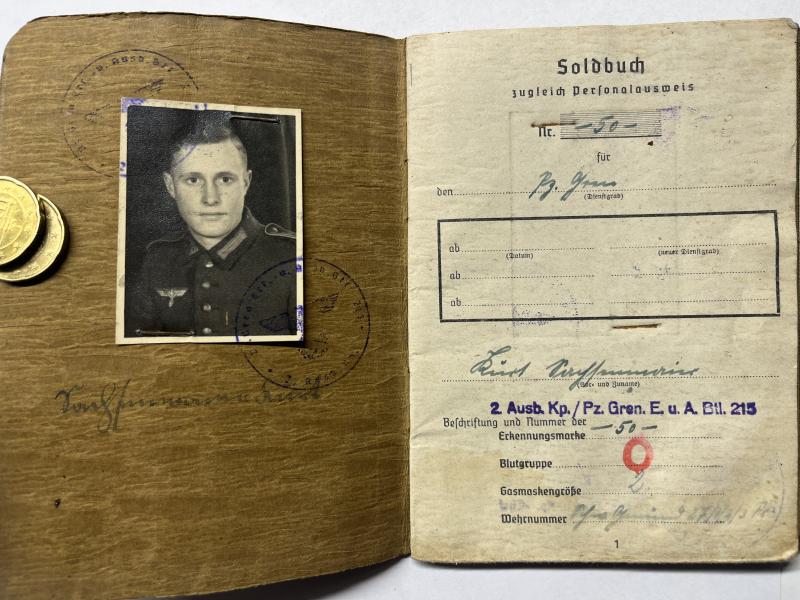 Sachsenmaier Kurt
Soldbuch
zugleich Personalausweis
Nr. -50-
für
den Pz. Gren
(Dienstgrad)
ab
(Datum) (neuer Dienstgrad)
ab
ab
Kurt Sachsenmaier
(Vor- und Zuname)
2. Ausb. Kp./Pz. Gren. E. u. A. Btl. 215
Beschriftung und Nummer der
Erkennungsmarke -50-
Blutgruppe O
Gasmaskengröße 2
Wehrnummer
1